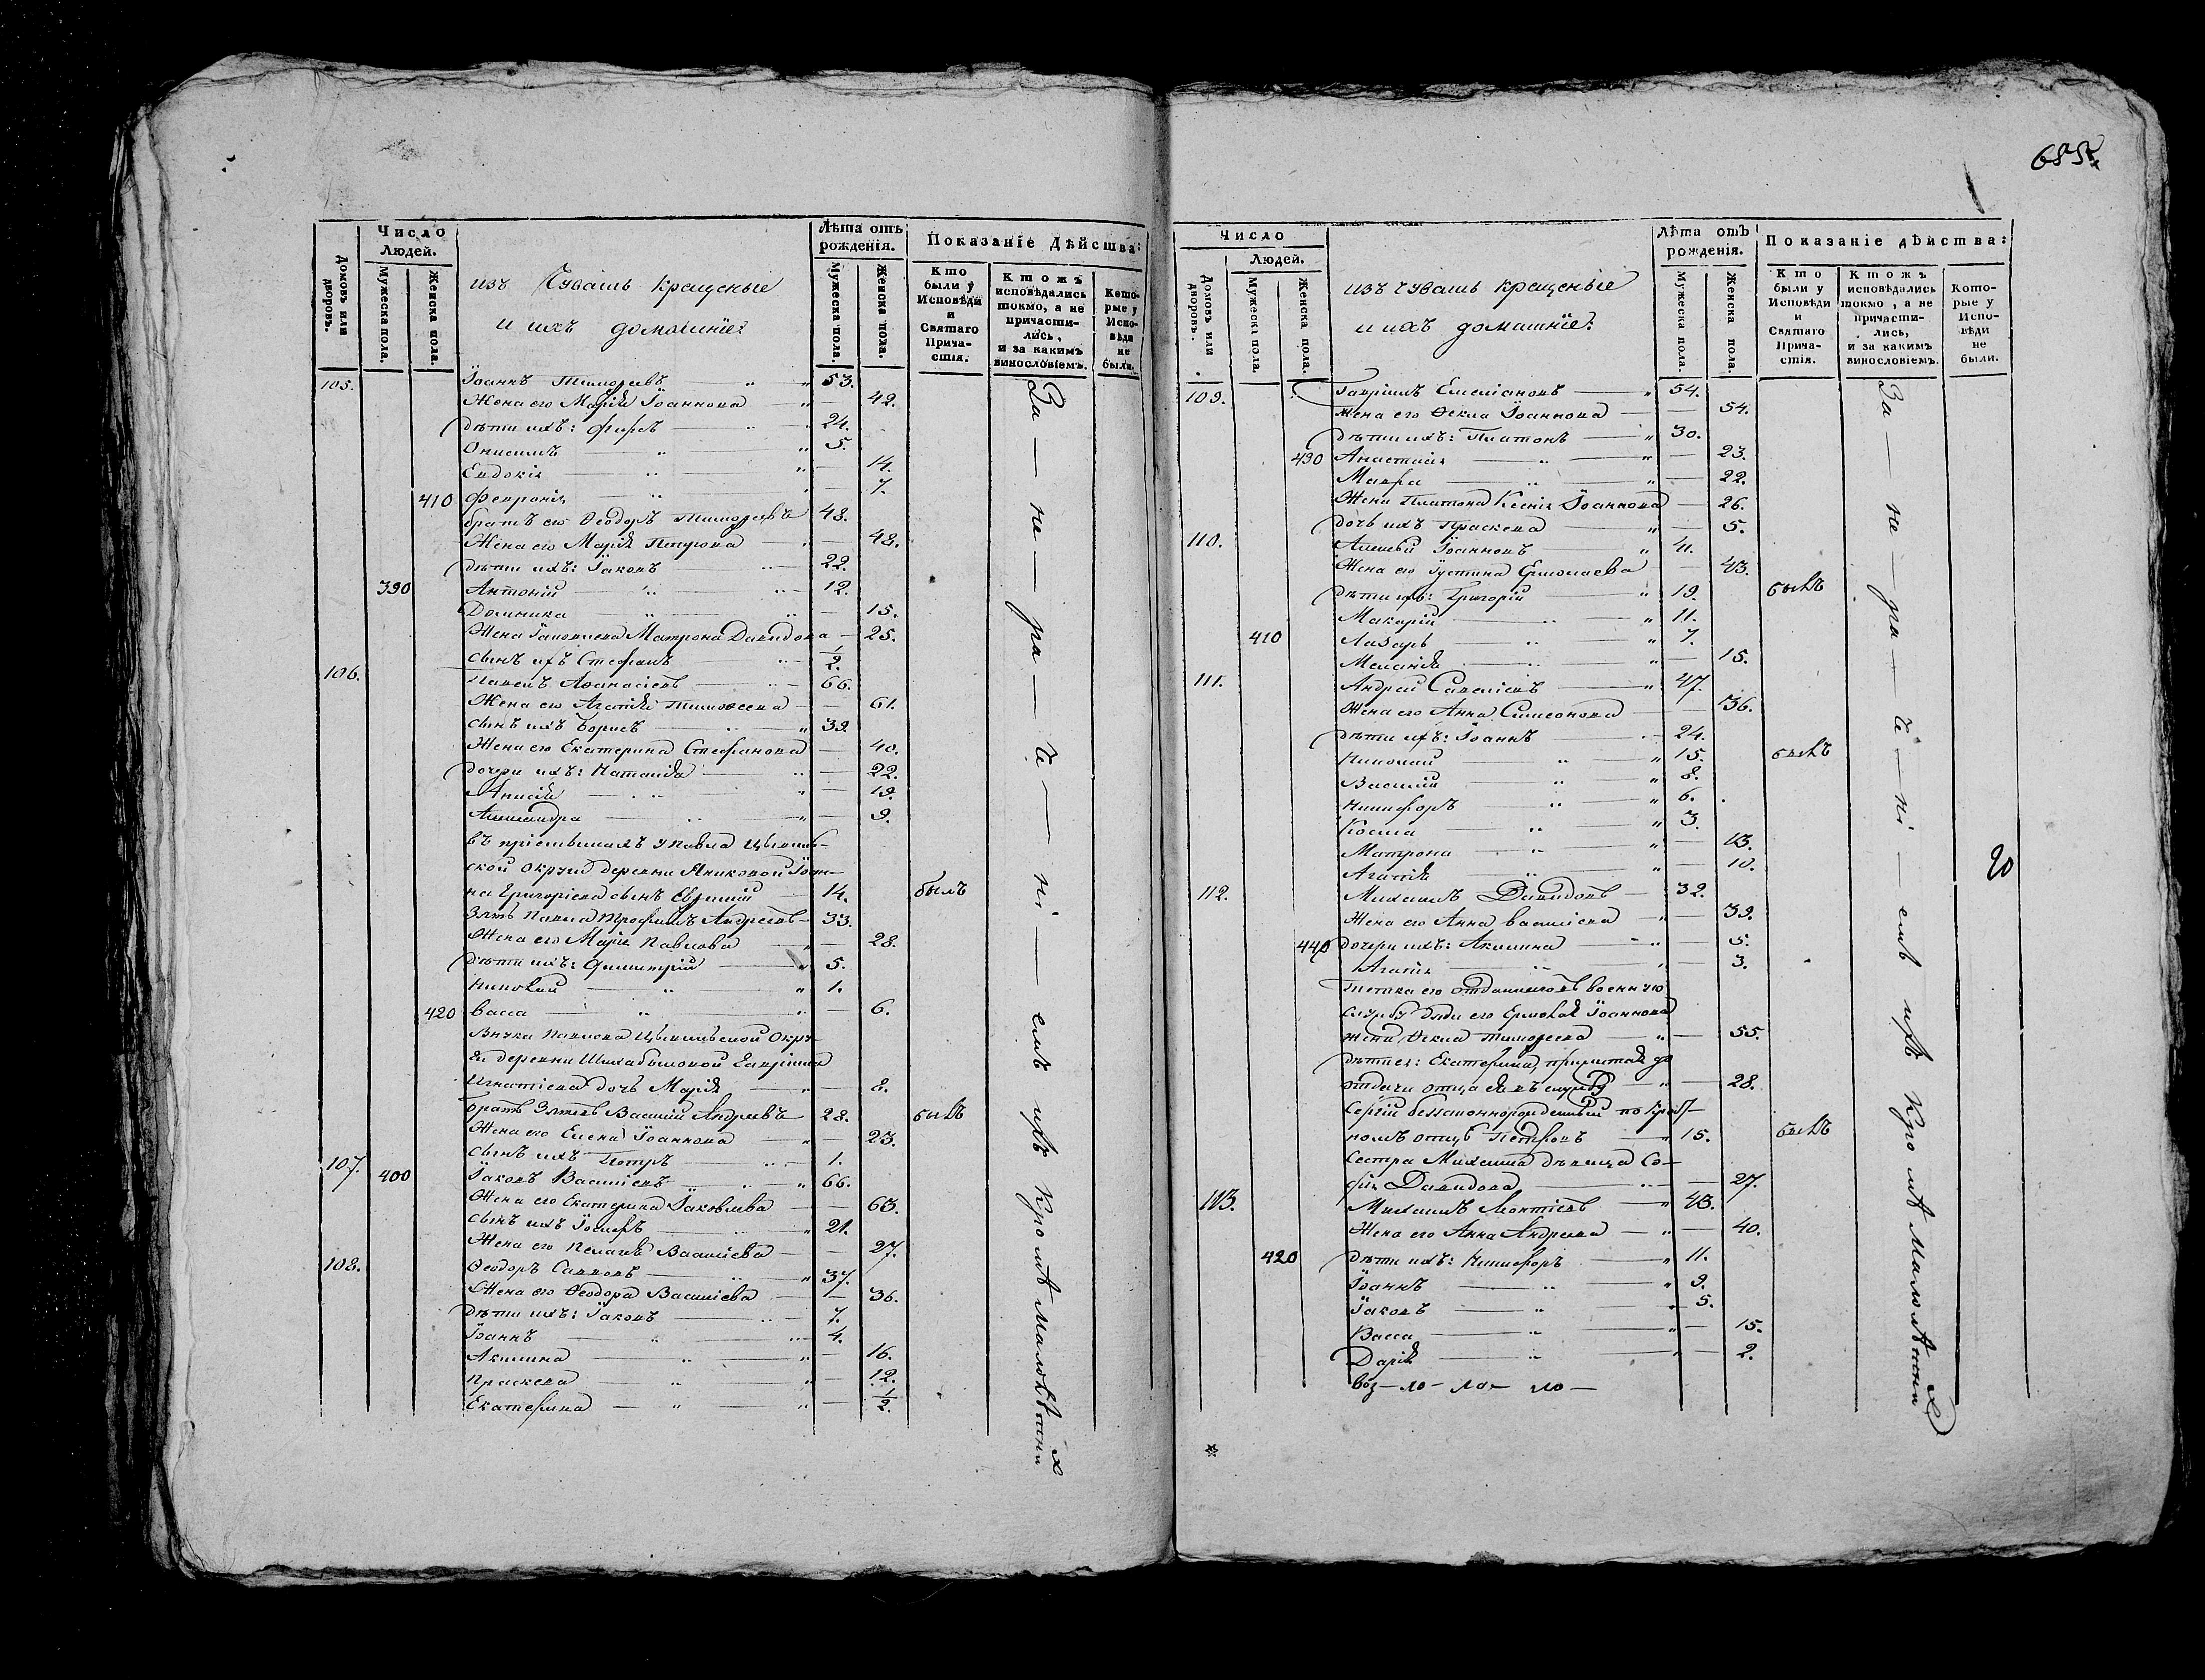 685.
Домовъ или дворовъ.
Число Людей.
Мужеска пола.
Женска пола.
изъ Чувашъ крещеные
и ихъ домашніе:
Лѣта отъ рожденія.
Мужеска пола.
Женска пола.
Показаніе дѣйства:
Кто были у Исповѣди и Святаго Причастія.
Ктожъ исповѣдались токмо, а не причастились, и за какимъ винословіемъ.
Которые у Исповѣди не были.
105. Іоаннъ Тимоѳеевъ 53.
Жена его Марія Іоаннова 42.
Дѣти ихъ: Фирсъ 24.
Онисимъ 5.
Евдокія 14.
410 Февронія 7.
братъ его Ѳеодоръ Тимоѳеевъ 48.
Жена его Марія Петрова 48.
Дѣти ихъ: Іаковъ 22.
390 Антоній 12.
Домника 15.
Жена Іаковлева Матрона Давидова 25.
сынъ ихъ Стефанъ 1/2.
106. Павелъ Аѳанасіевъ 66.
Жена его Агаѳія Тимоѳеева 61.
сынъ ихъ Борисъ 39.
Жена его Екатерина Стефанова 40.
дочери ихъ: Наталія 22.
Анисія 19.
Александра 9.
въ пріемышахъ у Павла Цывиль-
ской округи деревни Яниковой Іоан-
на Григоріева сынъ Евѳимій 14. былъ
Зять Павла Трофимъ Андреевъ 33.
Жена его Марія Павлова 28.
Дѣти ихъ: Димитрій 5.
Николай 1.
420 Васса 6.
Внучка Павлова Цывильской Окру-
ги деревни Шихабыловой Гавріила
Игнатіева дочь Марія 8.
Братъ Зятевъ Василій Андреевъ 28. былъ
Жена его Елена Іоаннова 23.
сынъ ихъ Петръ 1.
107. 400 Іаковъ Васильевъ 66.
Жена его Екатерина Іаковлева 63.
сынъ ихъ Іосифъ 21.
Жена его Пелагія Васильева 27.
108. Ѳеодоръ Савновъ 37.
Жена его Ѳеодора Васильева 36.
Дѣти ихъ: Іаковъ 7.
Іоаннъ 4.
Акилина 16.
Праскева 12.
Екатерина 1/2.
За — не — ра — че — ні — емъ ихъ Кромѣ малолѣтнихъ
Домовъ или дворовъ.
Число Людей.
Мужеска пола.
Женска пола.
изъ чувашъ крещеніе
и ихъ домашніе:
Лѣта отъ рожденія.
Мужеска пола.
Женска пола.
Показаніе дѣйства:
Кто были у Исповѣди и Святаго Причастія.
Ктожъ исповѣдались токмо, а не причастились, и за какимъ винословіемъ.
Которые у Исповѣди не были.
109. Гавріилъ Емеліановъ 54.
Жена его Ѳекла Іоаннова 54.
Дѣти ихъ: Платонъ 30.
430 Анастасія 23.
Мавра 22.
Жена Платона Ксенія Іоаннова 26.
дочь ихъ Праскева 5.
110. Алексѣй Іоанновъ 41.
Жена его Іустина Ермолаева 43.
Дѣти ихъ: Григорій 19. былъ
Макарій 11.
410 Лазарь 7.
Меланія 15.
111. Андрей Савеліевъ 47.
Жена его Анна Симеонова 36.
Дѣти ихъ: Іоаннъ 24.
Николай 15. былъ
Василій 8.
Никифоръ 6.
Косма 3.
Матрона 13.
Агаѳія 10.
20
112. Михаилъ Давидовъ 32.
Жена его Анна Васильева 39.
440 дочери ихъ: Акилина 5.
Агаѳія 3.
Тетка его отданнаго въ военную
службу дяди его Ермолая Іоаннова
жена Ѳекла Тимоѳеева 55.
Дѣти ея: Екатерина, прижитая до
отдачи отца ея въ службу 28.
Сергій беззаконнорожденный по крест-
номъ отцѣ Петровъ 15. былъ
Сестра Михаила дѣвица Со-
фія Давидова 27.
113. Михаилъ Леонтіевъ 43.
Жена его Анна Андреева 40.
420 Дѣти ихъ: Никифоръ 11.
Іоаннъ 9.
Іаковъ 5.
Васса 15.
Дарія 2.
За — не — ра — че — ні — емъ ихъ Кромѣ Малолѣтнихъ